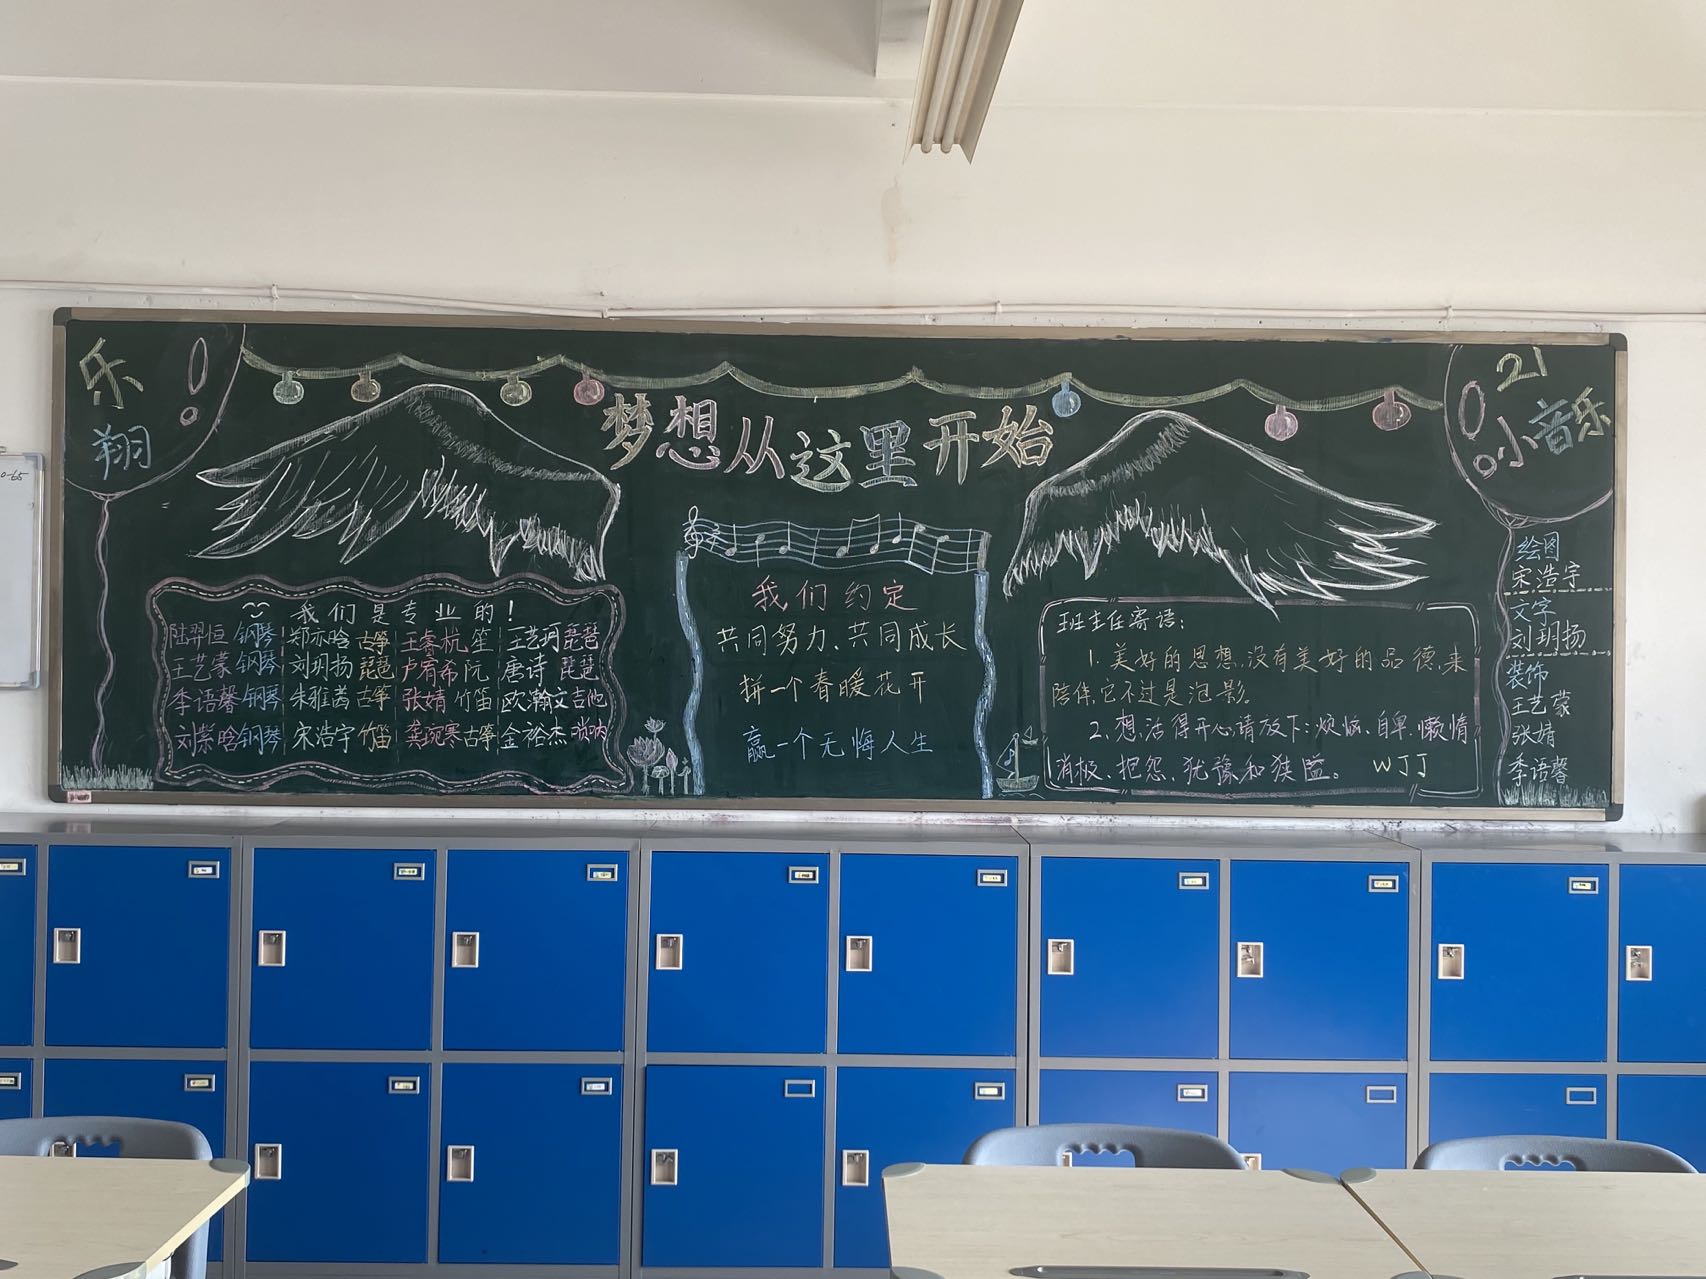 乐
翔
梦想从这里开始
21
小音乐
我们是专业的！
陆羿恒 钢琴 郑亦晗 古筝 王睿杭 笙 王艺珂 琵琶
王艺蒙 钢琴 刘玥扬 琵琶 卢宥希 阮 唐诗 琵琶
季语馨 钢琴 朱雅茜 古筝 张婧 竹笛 欧瀚文 吉他
刘崇晗 钢琴 宋浩宇 竹笛 龚琬寒 古筝 金裕杰 唢呐
我们约定
共同努力、共同成长
拼一个春暖花开
赢一个无悔人生
班主任寄语：
1. 美好的思想，没有美好的品德来
陪伴，它不过是泡影。
2、想活得开心请放下：烦恼、自卑、懒惰
消极、抱怨、犹豫和狭隘。 WJJ
绘图
宋浩宇
文字
刘玥扬
装饰
王艺蒙
张婧
季语馨